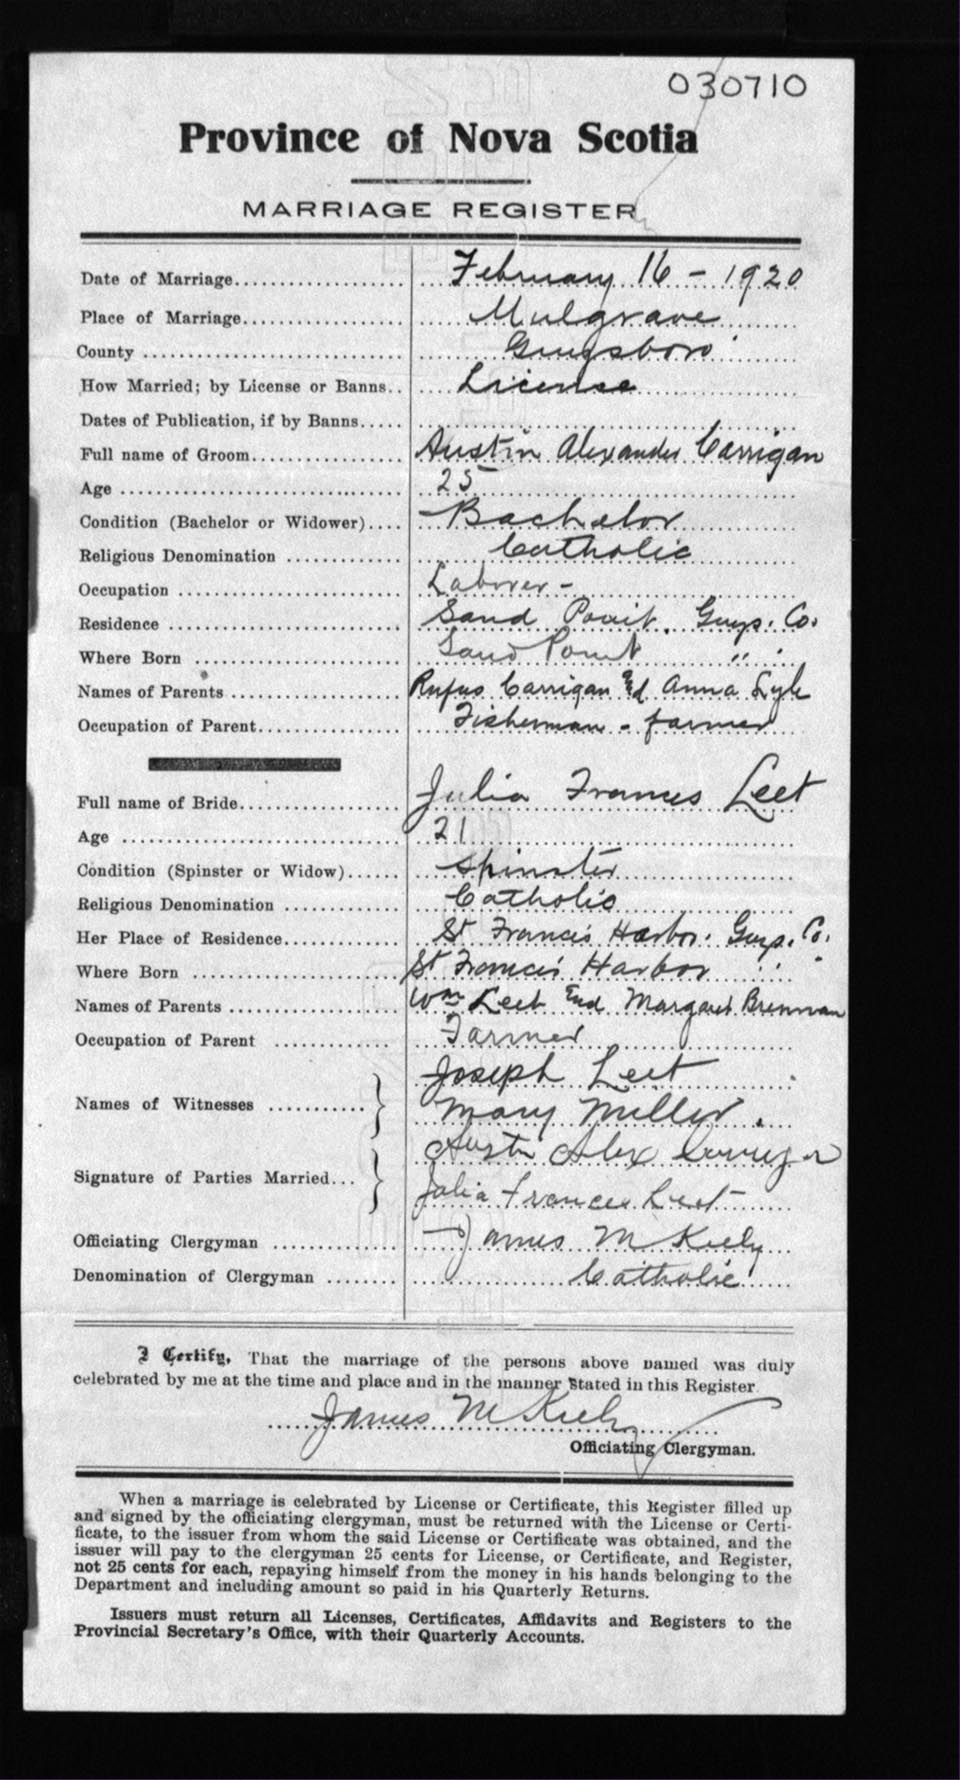 030710
Province of Nova Scotia
MARRIAGE REGISTER
Date of Marriage February 16 - 1920
Place of Marriage Mulgrave
County Guysboro
How Married; by License or Banns License
Dates of Publication, if by Banns
Full name of Groom Austin Alexander Carrigan
Age 25
Condition (Bachelor or Widower) Bachelor
Religious Denomination Catholic
Occupation Laborer -
Residence Sand Point. Guys. Co.
Where Born Sand Point " "
Names of Parents Rufus Carrigan and Anna Lyle
Occupation of Parent Fisherman - farmer
Full name of Bride Julia Frances Leet
Age 21
Condition (Spinster or Widow) Spinster
Religious Denomination Catholic
Her Place of Residence St Francis Harbor. Guys. Co.
Where Born St Francis Harbor " "
Names of Parents Wm Leet and Margaret Brennan
Occupation of Parent Farmer
Joseph Leet
Names of Witnesses
Mary Miller.
Austin Alex Carrigan
Signature of Parties Married
Julia Frances Leet
Officiating Clergyman James M Kiely
Denomination of Clergyman Catholic
I Certify, That the marriage of the persons above named was duly
celebrated by me at the time and place and in the manner stated in this Register
James M Kiely
Officiating Clergyman.
When a marriage is celebrated by License or Certificate, this Register filled up
and signed by the officiating clergyman, must be returned with the License or Certi-
ficate, to the issuer from whom the said License or Certificate was obtained, and the
issuer will pay to the clergyman 25 cents for License, or Certificate, and Register,
not 25 cents for each, repaying himself from the money in his hands belonging to the
Department and including amount so paid in his Quarterly Returns.
Issuers must return all Licenses, Certificates, Affidavits and Registers to the
Provincial Secretary's Office, with their Quarterly Accounts.